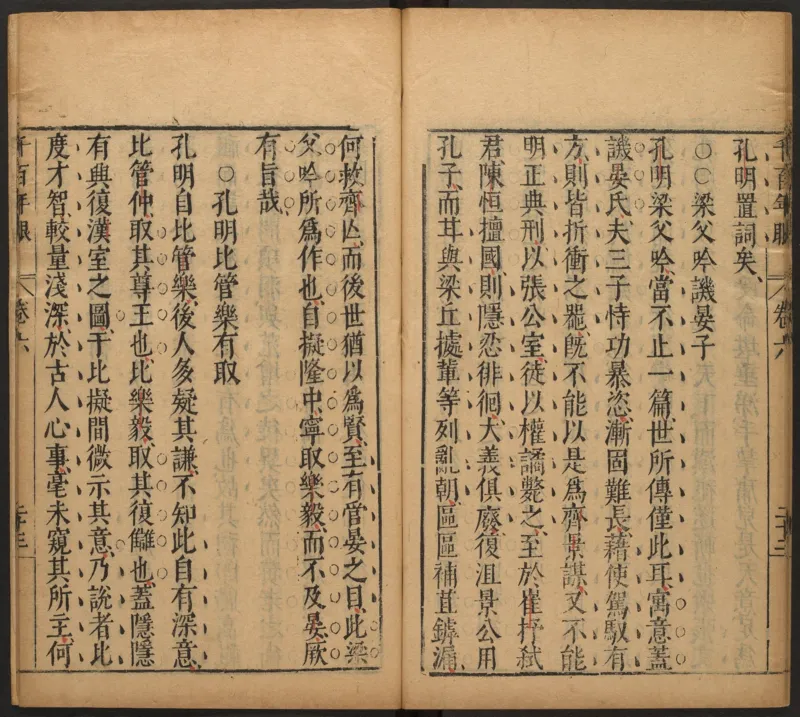 孔明置詞矣
○○梁父吟譏晏子
孔明梁父吟當不止一篇世所傳僅此耳寓意蓋
譏晏氏夫三子恃功暴恣漸固難長藉使駕馭有
方則皆折衝之噐旣不能以是爲齊景謀又不能
明正典刑以張公室徒以權譎斃之至於崔抒弑
君陳恒擅國則隱忍徘徊大義俱廢復沮景公用
孔子而耳與梁丘據輩等列亂朝區區補苴鏬漏
何救齊亾而後世猶以爲賢至有管晏之目此梁
父吟所爲作也自擬隆中寧取樂毅而不及晏厥
有旨哉
○孔明比管樂有取
孔明自比管樂後人多疑其謙不知此自有深意
比管仲取其尊王也比樂毅取其復讎也蓋隱隱
有興復漢室之圖于比擬間微示其意乃說者比
度才智較量淺深於古人心事毫未窺其所主何
千百年眼
卷六
二十三